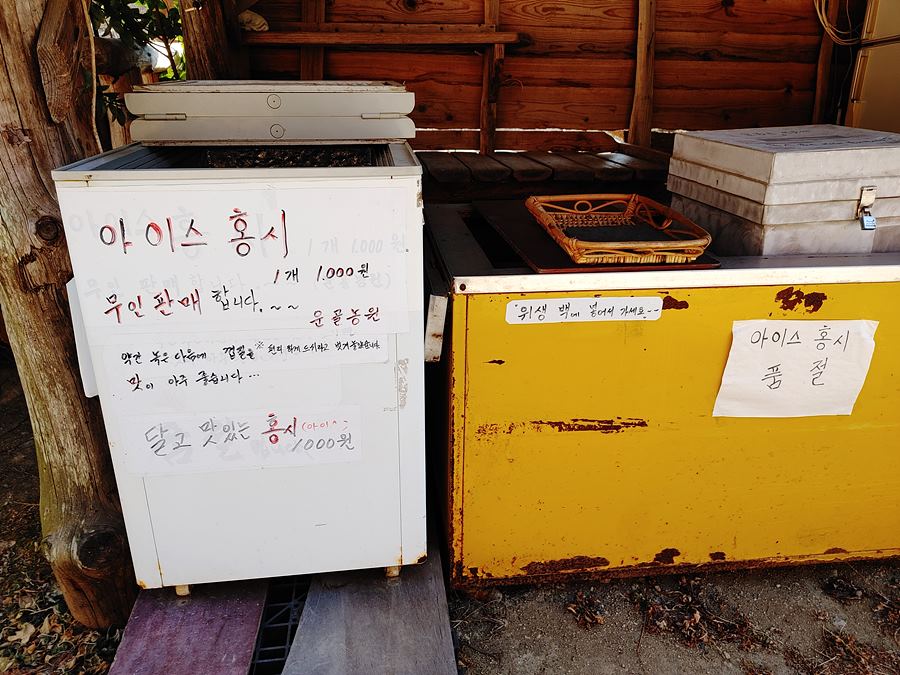 아이스 홍시
1개 1.000원
무인판매 합니다.~~
운골농원
약간 녹은 다음에 껍질을
맛이 아주 좋습니다...
달고 맛있는 홍시(아이^)
1000원
위생 백에 넣어서 가세요--
아이스 홍시
품 절